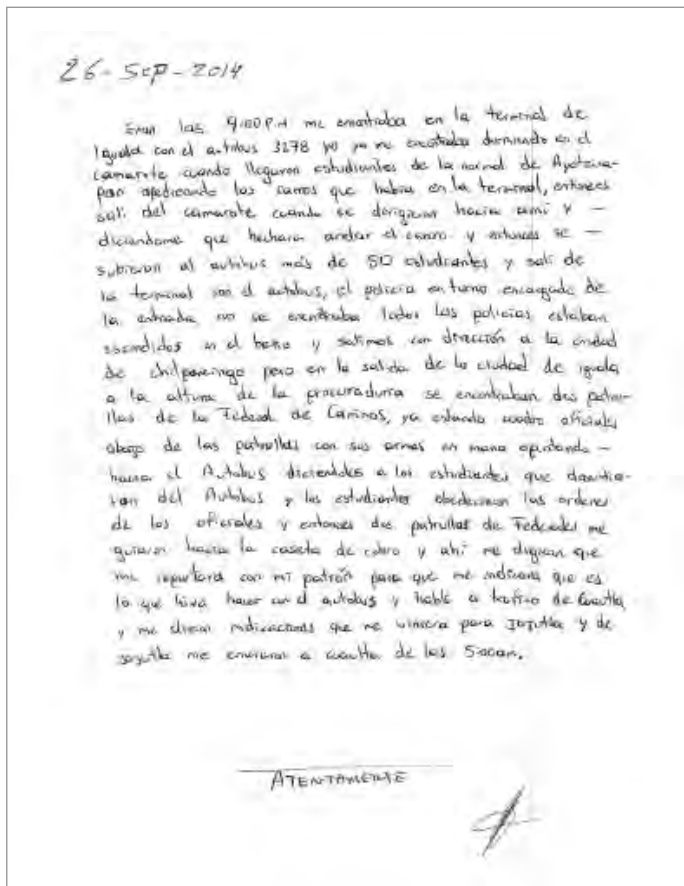 26-Sep-2014
Eran las 9:00 P.M me encontraba en la terminal de
Iguala con el autobus 3278 yo ya me encontraba durmiendo en el
camarote cuando llegaron estudiantes de la normal de Ayotzina-
pan apedreando los carros que habia en la terminal, entonces
sali del camarote cuando se dirigieron hacia ami y -
diciendome que hechara andar el carro y entonces se -
subieron al autobus más de 50 estudiantes y sali de
la terminal con el autobus, el policia en turno encargado de
la entrada no se encontraba todos los policias estaban
escondidos en el baño y salimos con dirección a la ciudad
de chilpancingo pero en la salida de la ciudad de iguala
a la altura de la procuraduria se encontraban dos patru-
llas de la Federal de Caminos, ya estando cuatro oficiales
abajo de las patrullas con sus armas en mano apuntando -
hacia el Autobus diciendoles a los estudiantes que
del Autobus y los estudiantes obedecieron las ordenes
de los oficiales y entonces dos patrullas de Federales me
guiaron hacia la caseta de cobro y ahi me dijieron que
me reportara con mi patrón para que me indicara que es
lo que hiva hacer con el autobus y hable a trafico de Cuautla
y me dieron indicaciones que me viniera para Jojutla y de
jojutla me enviaron a cuautla de las 5:00am.
ATENTAMENTE